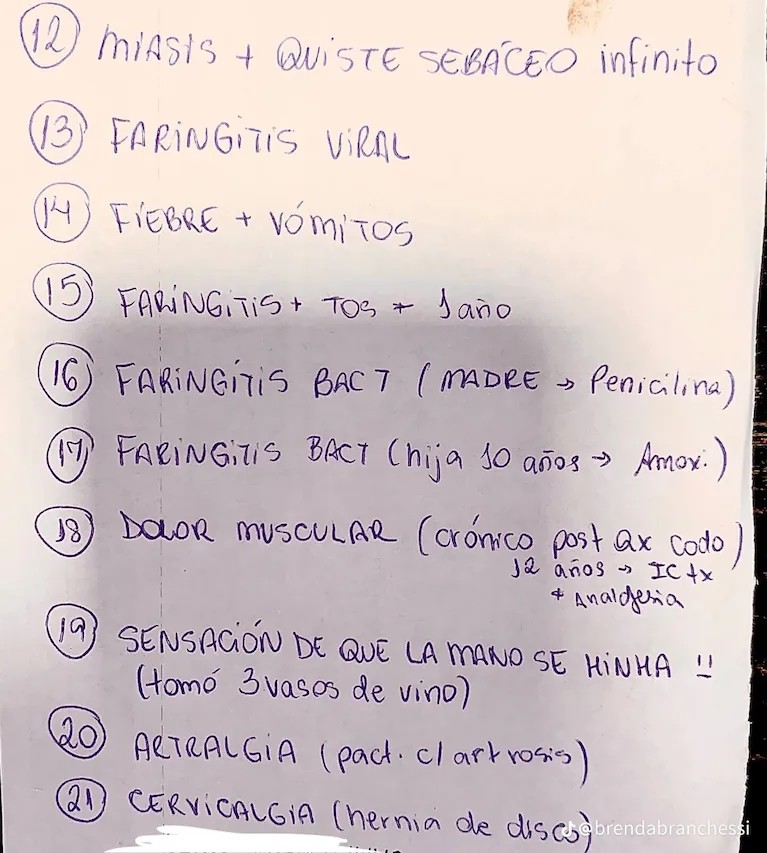 12 MIASIS + QUISTE SEBÁCEO infinito
13 FARINGITIS VIRAL
14 FIEBRE + VÓMITOS
15 FARINGITIS + TOS + 1 año
16 FARINGITIS BACT (MADRE → Penicilina)
17 FARINGITIS BACT (hija 10 años → Amox.)
18 DOLOR MUSCULAR (crónico post qx codo)
12 años → IC tx
+ Analgesia
19 SENSACIÓN DE QUE LA MANO SE HINHA !!
(tomó 3 vasos de vino)
20 ARTRALGIA (pact. c/ artrosis)
21 CERVICALGIA (hernia de disco)
@brendabranchessi